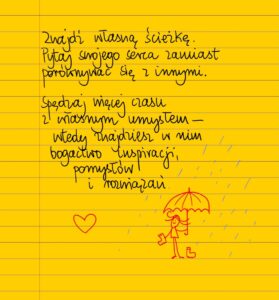 Znajdź własną ścieżkę.
Pytaj swojego serca zamiast
porównywać się z innymi.
Spędzaj więcej czasu
z własnym umysłem –
wtedy znajdziesz w nim
bogactwo inspiracji,
pomysłów
i rozwiązań.